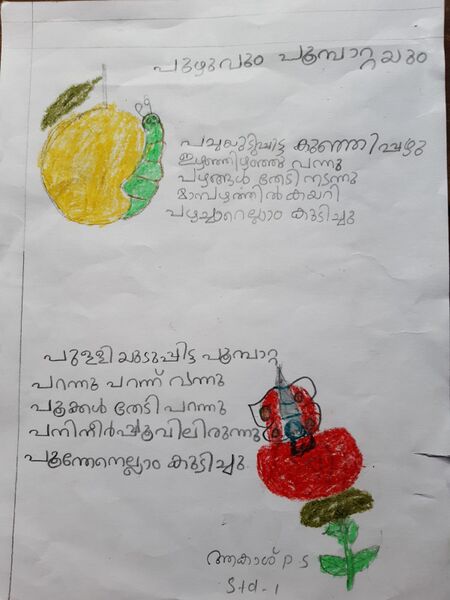 പുഴുവും പൂമ്പാറ്റയും
പച്ചയുടുപ്പിട്ട കുഞ്ഞിപ്പുഴു
ഇഴഞ്ഞിഴഞ്ഞു വന്നു
പഴങ്ങൾ തേടി നടന്നു
മാമ്പഴത്തിൽ കയറി
പഴച്ചാറെല്ലാം കുടിച്ചു
പുള്ളിയുടുപ്പിട്ട പൂമ്പാറ്റ
പറന്നു പറന്ന് വന്നു
പൂക്കൾ തേടി പറന്നു
പനിനീർപ്പൂവിലിരുന്നു
പൂന്തേനെല്ലാം കുടിച്ചു.
ആകാശ് P S
Std - 1